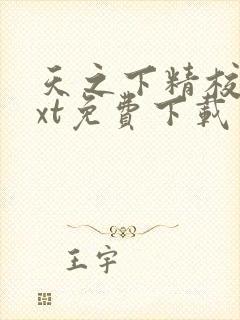 天之下精校
xt免費下載
王宇